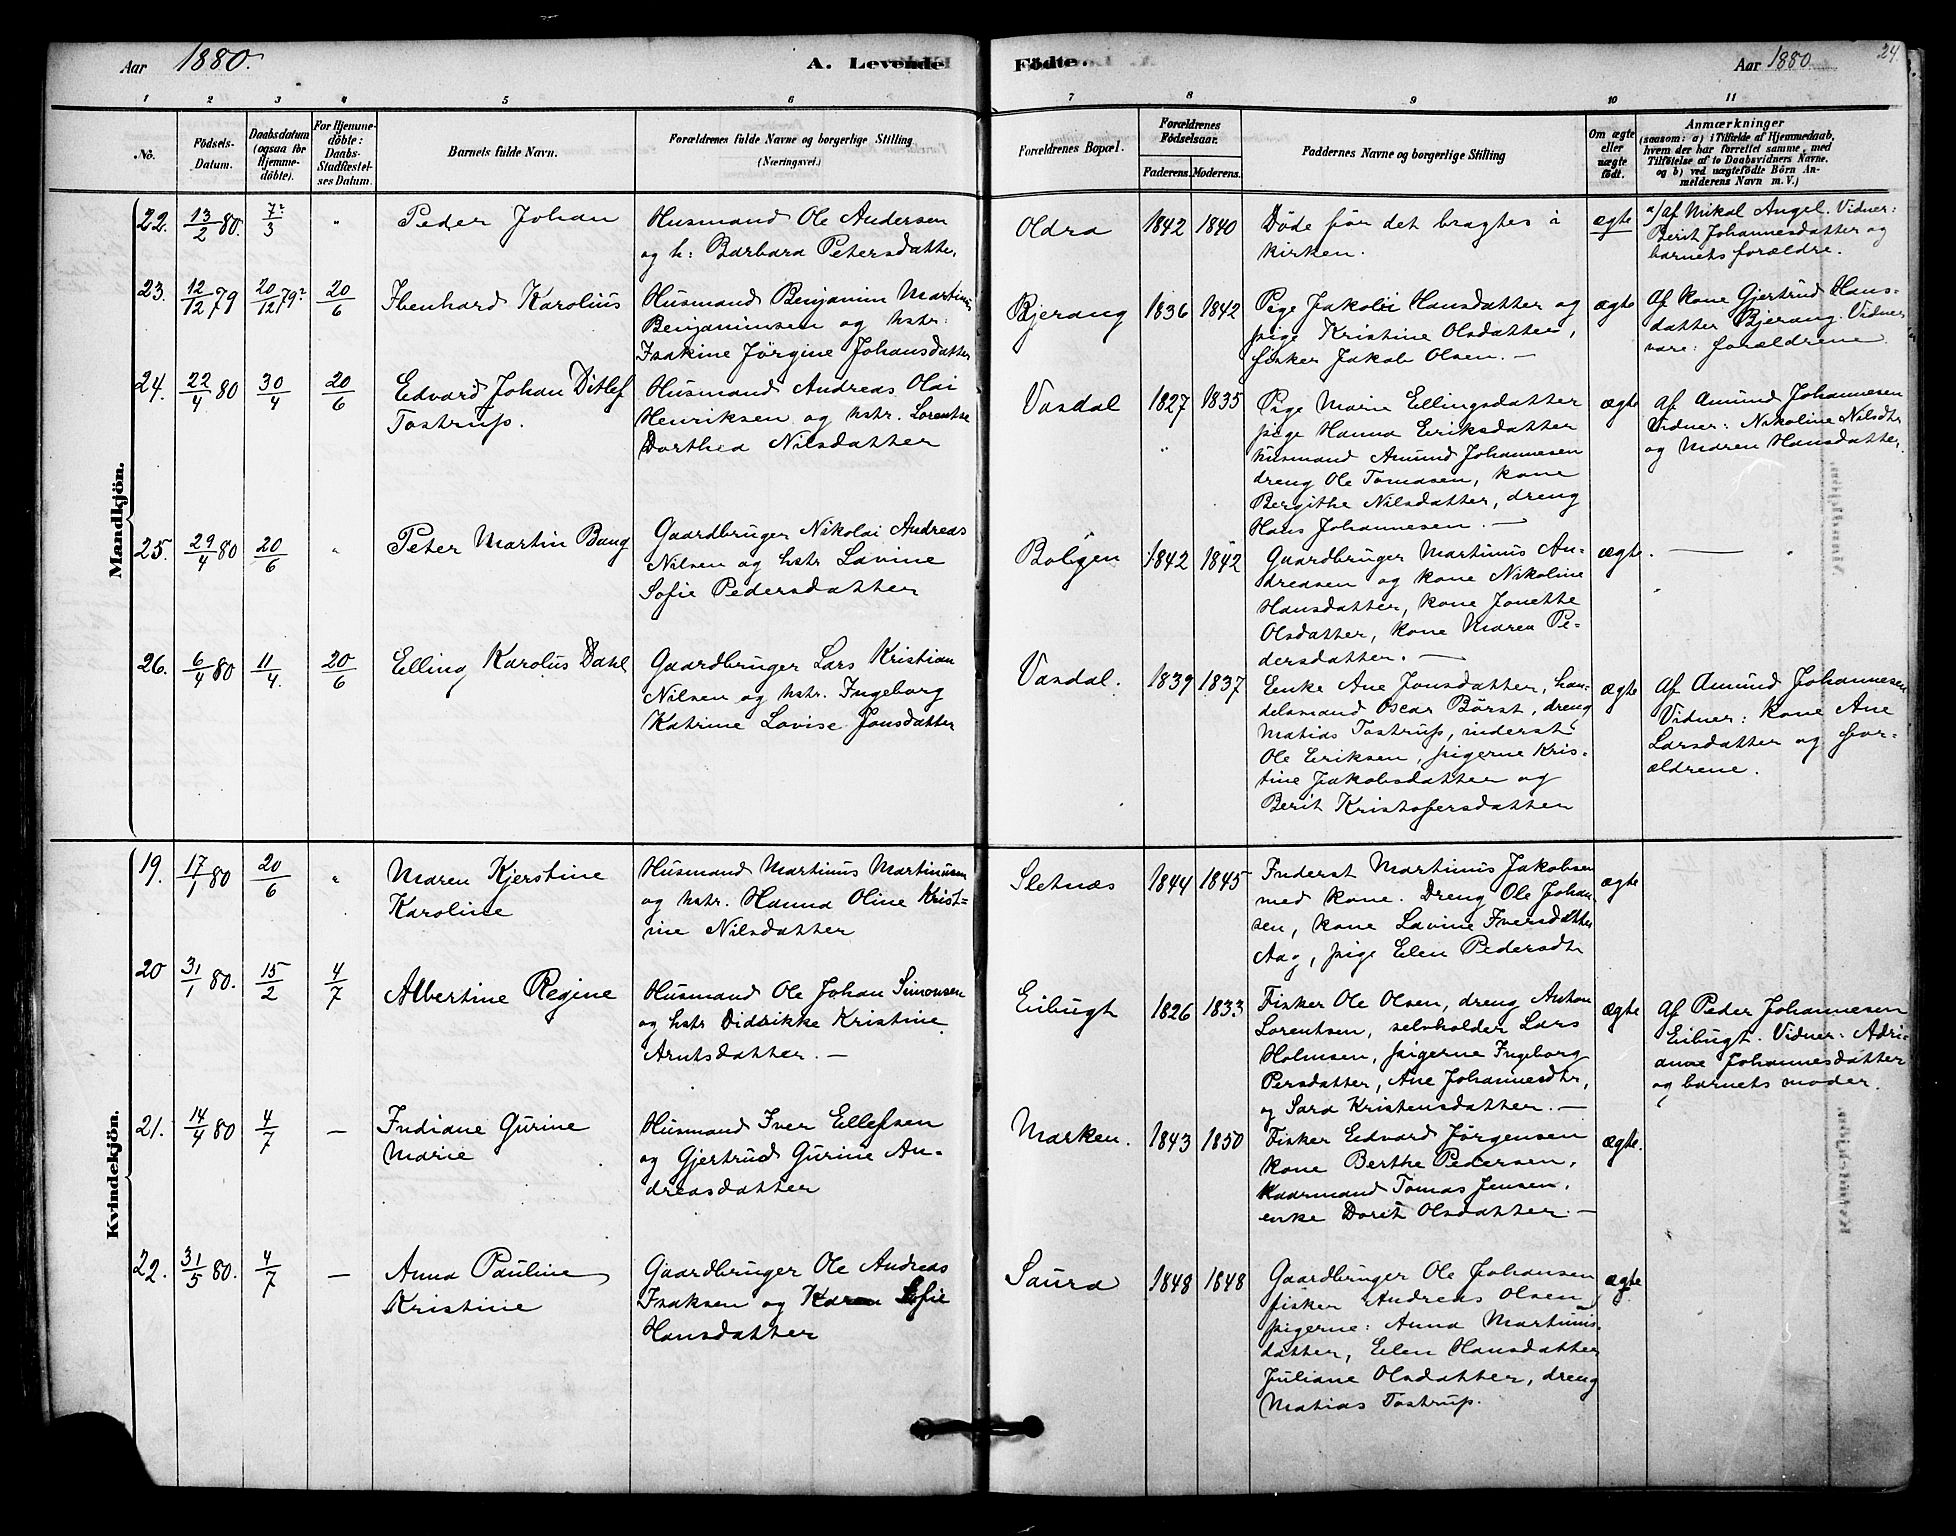 Aar 1880.
A. Levende
Födte.
Aar 1880
24.
1 2 3 4 5 6 7 8 9 10 11
No.
Födsels-
Datum.
Daabsdatum
(ogsaa for
Hjemme-
döbte).
For Hjemme-
döbte:
Daabs-
Stadfæstel-
ses Datum.
Barnets fulde Navn.
Forældrenes fulde Navne og borgerlige Stilling
(Næringsvei.)
Forældrenes Bopæl.
Forældrenes
Födselsaar.
Faderens. Moderens.
Faddernes Navne og borgerlige Stilling
Om ægte
eller
uægte
födt.
Anmærkninger
(saasom: a) i Tilfælde af Hjemmedaab,
hvem der har forrettet samme, med
Tilföielse af to Daabsvidners Navne.
og b) ved uægtefödte Börn An-
melderens Navn m. V.)
Mandkjön.
22. 13/2 80. 7/3 "
Peder Johan
Husmand Ole Andersen
og h: Barbara Petersdatte,
Oldra 1842 1840
Døde før det bragtes i
kirken.
ægte
a/ af Mikal Angel. Vidner:
Berit Johannesdatter og
barnets forældre.
23. 12/12 79 20/12 79 20/6
Ibenhard Karolius
Husmand Benjamin Martinus
Benjaminsen og hstr:
Isakine Jørgine Johansdatter
Bjerang 1836 1842
Pige Jakobi Hansdatter og
pige Kristine Olsdatter,
fisker Jakob Olsen. —
ægte
Af kone Gjertrud Hans-
datter Bjerang. Vidner
vare: forældrene
24. 22/4 80 30/4 20/6
Edvard Johan Ditlef
Tostrup.
Husmand Andreas Olai
Henriksen og hstr. Lorentse
Dorthea Nilsdatter
Vasdal 1827 1835
Pige Marie Ellingsdatter
pige Hanna Eriksdatter
husmand Amund Johannesen
dreng Ole Tomasen, kone
Bergithe Nilsdatter, dreng
Hans Johannesen. —
ægte
Af Amund Johannesen
Vidner: Nikoline Nilsdtr
og Maren Hansdatter,
25. 29/4 80 20/6 "
Peter Martin Bang
Gaardbruger Nikolai Andreas
Nilsen og hstr Lovine
Sofie Pedersdatter
Boligen 1842 1842
Gaardbruger Martinus An-
dreasen og kone Nikoline
Hansdatter, kone Jonette
Olsdatter, kone Maren Pe-
dersdatter. —
ægte. —
26. 6/4 80 11/4. 20/6
Elling Karolus Dahl
Gaardbruger Lars Kristian
Nilsen og hstr. Ingeborg
Katrine Lovise Jonsdatter
Vasdal. 1839 1837
Enke Ane Jonsdatter, han-
delsmand Oscar Børst, dreng
Matias Tostrup, inderst
Ole Eriksen, pigerne Kris-
tine Jakobsdatter og
Berit Kristofersdatter
ægte
Af Amund Johannesen
Vidner: kone Ane
Larsdatter og for-
ældrene.
Kvindekjön.
19. 17/1 80 20/6 "
Maren Kjerstine
Karoline
Husmand Martinus Martinusen
og hstr. Hanna Oline Krist-
ine Nilsdatter
Sletnæs 1844 1845
Inderst Martinus Jakobsen
med kone. Dreng Ole Johan-
sen, kone Lovine Iversdatter
Aag, pige Elen Pedersdtr
ægte
20 31/1 80. 15/2 4/7
Albertine Regine
Husmand Ole Johan Simonsen
og hstr Didrikke Kristine
Arntsdatter. —
Eibugt 1826 1833
Fisker Ole Olsen, dreng Anton
Lorentsen, selvholder Lars
Holmsen, pigerne Ingeborg
Persdatter, Ane Johannesdtr,
og Sara Kristensdatter. —
ægte
Af Peder Johannesen
Eibugt. Vidner: Adri-
anae Johannesdatter
og barnets moder.
21. 14/4 80 4/7 —
Indiane Gurine
Marie
Husmand Iver Ellefsen
og Gjertrud Gurine An-
dreasdatter
Marken. 1843 1850
Fisker Edvard Jørgensen
kone Berthe Pedersen,
kaarmand Tomas Jensen,
enke Dorit Olsdatter. —
ægte.
22. 31/5 80. 4/7 —
Anna Pauline
Kristine
Gaardbruger Ole Andreas
Isaksen og Karen Sofie
Hansdatter
Saura 1848 1848
Gaardbruger Ole Johansen
fisker Andreas Olsen
pigerne: Anna Martinus-
datter, Elen Hansdatter
Juliane Olsdatter, dreng
Matias Tostrup.
ægte